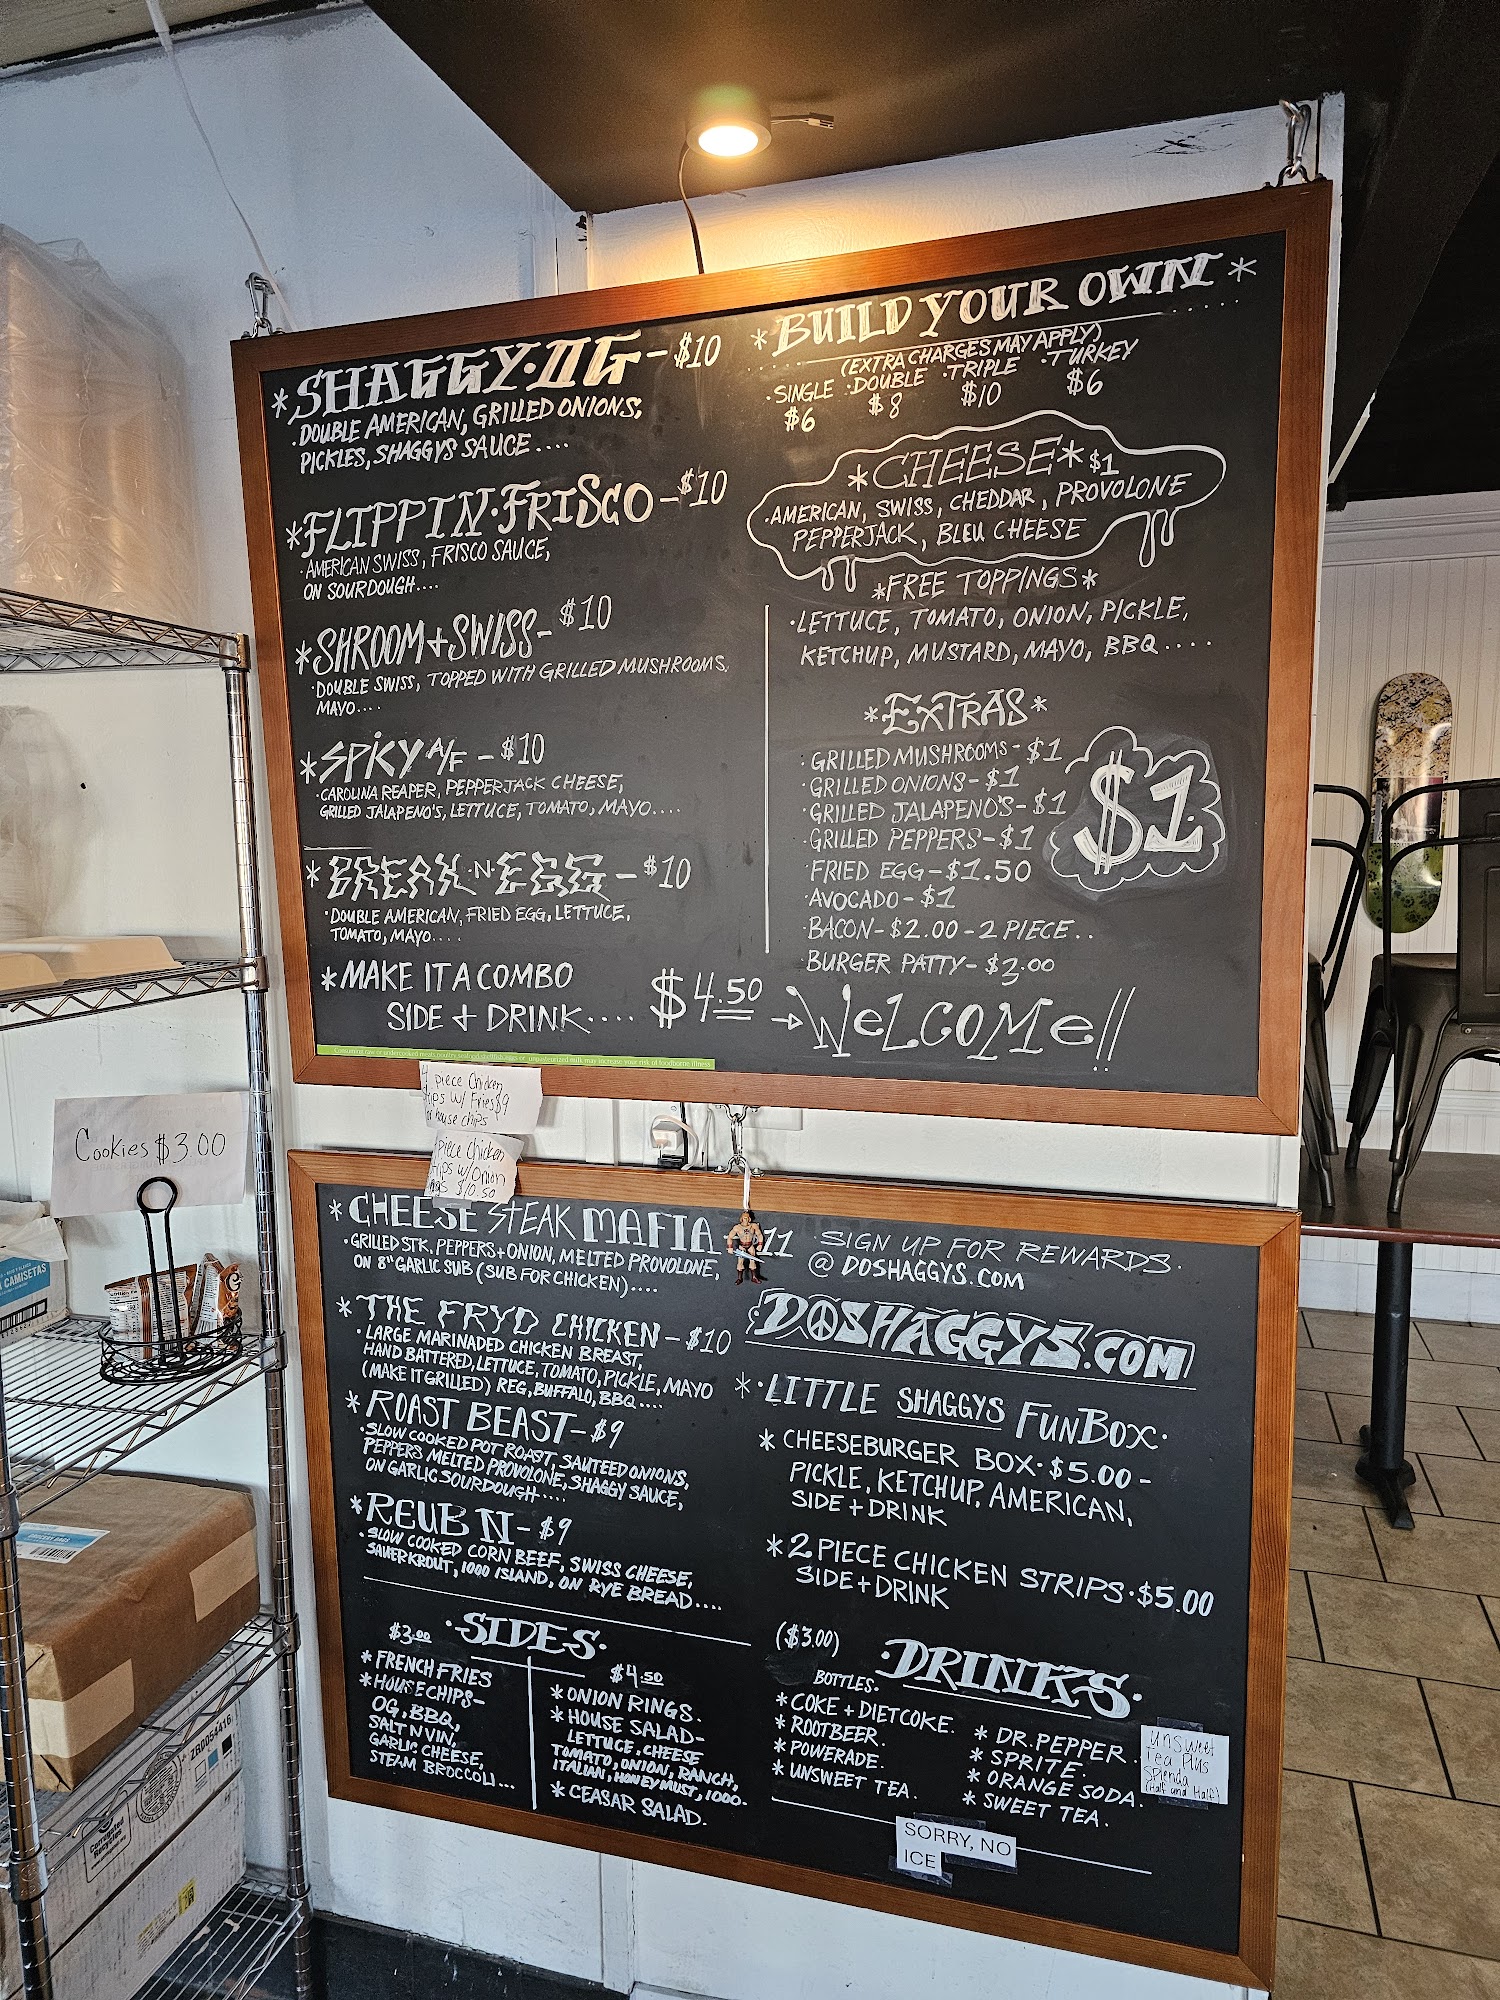 *SHAGGY·OG - $10
·DOUBLE AMERICAN, GRILLED ONIONS,
PICKLES, SHAGGYS SAUCE....
*FLIPPIN·FRISCO - $10
·AMERICAN SWISS, FRISCO SAUCE,
ON SOURDOUGH....
*SHROOM + SWISS - $10
·DOUBLE SWISS, TOPPED WITH GRILLED MUSHROOMS,
MAYO....
*SPICY A/F - $10
·CAROLINA REAPER, PEPPERJACK CHEESE,
GRILLED JALAPENO'S, LETTUCE, TOMATO, MAYO....
*BREAK·N·EGG - $10
·DOUBLE AMERICAN, FRIED EGG, LETTUCE,
TOMATO, MAYO....
*MAKE IT A COMBO
SIDE + DRINK.... $4.50
Consuming raw or undercooked meats, poultry, seafood, shellfish, eggs or unpasteurized milk may increase your risk of foodborne illness
*BUILD YOUR OWN*
(EXTRA CHARGES MAY APPLY)
·SINGLE ·DOUBLE ·TRIPLE ·TURKEY
$6 $8 $10 $6
*CHEESE* $1
·AMERICAN, SWISS, CHEDDAR, PROVOLONE
PEPPERJACK, BLEU CHEESE
*FREE TOPPINGS*
·LETTUCE, TOMATO, ONION, PICKLE,
KETCHUP, MUSTARD, MAYO, BBQ....
*EXTRAS*
·GRILLED MUSHROOMS - $1
·GRILLED ONIONS - $1
·GRILLED JALAPENO'S - $1
·GRILLED PEPPERS - $1
·FRIED EGG - $1.50
·AVOCADO - $1
·BACON - $2.00 - 2 PIECE..
·BURGER PATTY - $3.00
$1
→WELCOMe!!
piece Chicken
W/ Fries $9
house chips
piece Chicken
w/ Onion
$10.50
Cookies $3.00
CAMISETAS
*CHEESE STEAK MAFIA 11
·GRILLED STK, PEPPERS + ONION, MELTED PROVOLONE,
ON 8" GARLIC SUB (SUB FOR CHICKEN)....
*THE FRYD CHICKEN - $10
·LARGE MARINADED CHICKEN BREAST,
HAND BATTERED, LETTUCE, TOMATO, PICKLE, MAYO
(MAKE IT GRILLED) REG, BUFFALO, BBQ....
*ROAST BEAST - $9
·SLOW COOKED POT ROAST, SAUTEED ONIONS,
PEPPERS MELTED PROVOLONE, SHAGGY SAUCE,
ON GARLIC SOURDOUGH.....
*REUB N - $9
·SLOW COOKED CORN BEEF, SWISS CHEESE,
SAUERKROUT, 1000 ISLAND, ON RYE BREAD....
·SIDES·
$3.00
*FRENCH FRIES
*HOUSE CHIPS-
OG, BBQ,
SALT N VIN,
GARLIC CHEESE,
STEAM BROCCOLI...
$4.50
*ONION RINGS.
*HOUSE SALAD-
LETTUCE, CHEESE
TOMATO, ONION, RANCH,
ITALIAN, HONEY MUST, 1000.
*CEASAR SALAD.
SIGN UP FOR REWARDS.
@ DOSHAGGYS.COM
DOSHAGGYS.COM
*·LITTLE SHAGGYS FUNBOX·
*CHEESEBURGER BOX·$5.00-
PICKLE, KETCHUP, AMERICAN,
SIDE + DRINK
*2 PIECE CHICKEN STRIPS·$5.00
SIDE + DRINK
($3.00) ·DRINKS·
BOTTLES:
*COKE + DIET COKE.
*ROOTBEER.
*POWERADE.
*UNSWEET TEA.
*DR. PEPPER.
*SPRITE.
*ORANGE SODA.
*SWEET TEA.
Unsweet
Tea Plus
Splenda
(Half and Half)
SORRY, NO
ICE
Corrugated
Recycles
ZB0054416